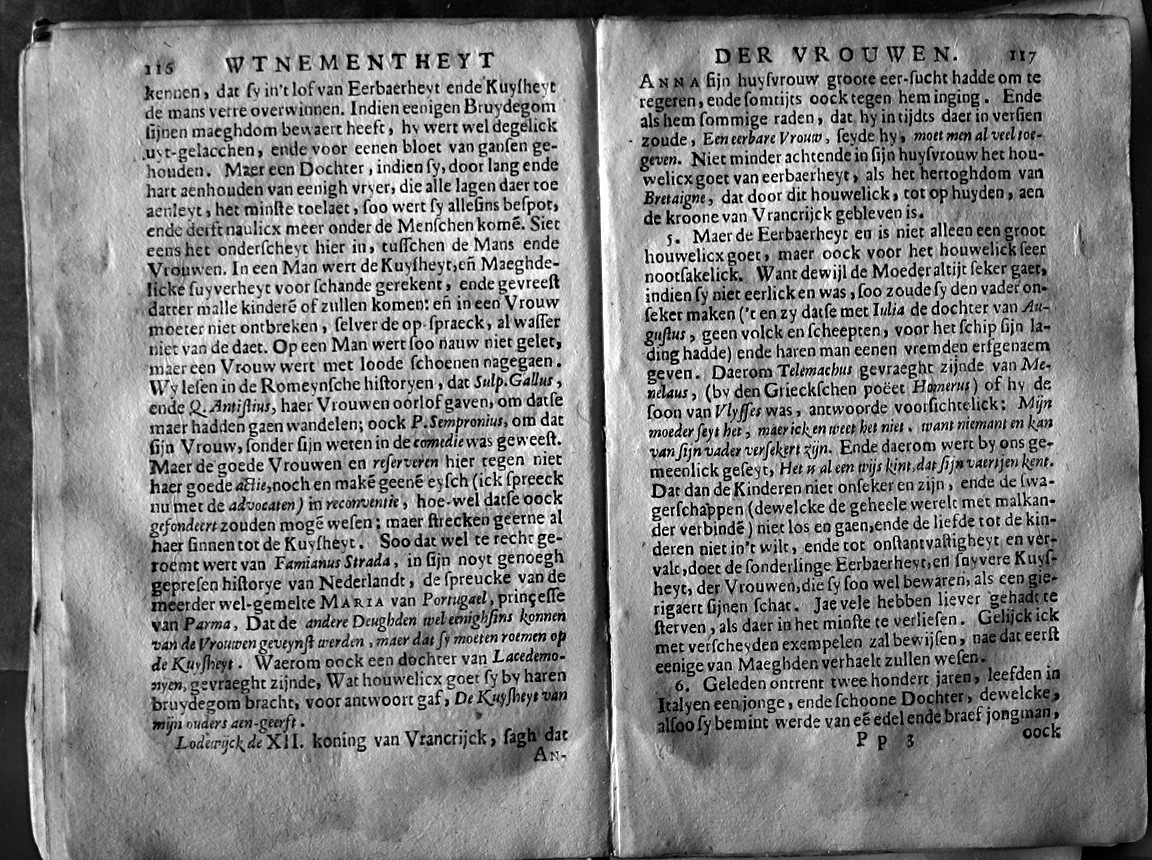 116 WTNEMENTHEYT
kennen, dat ſy in't lof van Eerbaerheyt ende Kuyſheyt
de mans verre overwinnen. Indien eenigen Bruydegom
ſijnen maeghdom bewaert heeft, hy wert wel degelick
uyt-gelacchen, ende voor eenen bloet van ganſen ge-
houden. Maer een Dochter, indien ſy, door lang ende
hart aenhouden van eenigh vryer, die alle lagen daer toe
aenleyt, het minſte toelaet, ſoo wert ſy alleſins beſpot,
ende derft naulicx meer onder de Menſchen komē. Siet
eens het onderſcheyt hier in, tuſſchen de Mans ende
Vrouwen. In een Man wert de Kuyſheyt, eñ Maeghde-
licke ſuyverheyt voor ſchande gerekent, ende gevreeſt
datter malle kinderē of zullen komen: eñ in een Vrouw
moeter niet ontbreken, ſelver de op-ſpraeck, al waſſer
niet van de daet. Op een Man wert ſoo nauw niet gelet,
maer een Vrouw wert met loode ſchoenen nagegaen.
Wy leſen in de Romeynſche hiſtoryen, dat Sulp. Gallus,
ende Q. Antiſtius, haer Vrouwen oorlof gaven, om datſe
maer hadden gaen wandelen; oock P. Sempronius, om dat
ſijn Vrouw, ſonder ſijn weten in de comedie was geweeſt.
Maer de goede Vrouwen en reſerveren hier tegen niet
haer goede actie, noch en makē geenē eyſch (ick ſpreeck
nu met de advocaten) in reconventie, hoe-wel datſe oock
gefondeert zouden mogē weſen; maer ſtrecken geerne al
haer ſinnen tot de Kuyſheyt. Soo dat wel te recht ge-
roemt wert van Famianus Strada, in ſijn noyt genoegh
gepreſen hiſtorye van Nederlandt, de ſpreucke van de
meerder wel-gemelte MARIA van Portugael, princeſſe
van Parma, Dat de andere Deughden wel eenighſins konnen
van de Vrouwen geveynſt werden, maer dat ſy moeten roemen op
de Kuyſheyt. Waerom oock een dochter van Lacedemo-
nyen, gevraeght zijnde, Wat houwelicx goet ſy by haren
bruydegom bracht, voor antwoort gaf, De Kuyſheyt van
mijn ouders aen-geerft.
Lodewijck de XII. koning van Vrancrijck, ſagh dat
AN-
DER VROUWEN. 117
ANNA ſijn huyſvrouw groote eer-ſucht hadde om te
regeren, ende ſomtijts oock tegen hem inging. Ende
als hem ſommige raden, dat hy in tijdts daer in verſien
zoude, Een eerbare Vrouw, ſeyde hy, moet men al veel toe-
geven. Niet minder achtende in ſijn huyſvrouw het hou-
welicx goet van eerbaerheyt, als het hertoghdom van
Bretaigne, dat door dit houwelick, tot op huyden, aen
de kroone van Vrancrijck gebleven is.
5. Maer de Eerbaerheyt en is niet alleen een groot
houwelicx goet, maer oock voor het houwelick ſeer
nootſakelick. Want dewijl de Moeder altijt ſeker gaet,
indien ſy niet eerlick en was, ſoo zoude ſy den vader on-
ſeker maken ('t en zy datſe met Iulia de dochter van Au-
guſtus, geen volck en ſcheepten, voor het ſchip ſijn la-
ding hadde) ende haren man eenen vremden erfgenaem
geven. Daerom Telemachus gevraeght zijnde van Me-
nelaus, (by den Grieckſchen poëet Homerus) of hy de
ſoon van Vlyſſes was, antwoorde voorſichtelick: Mijn
moeder ſeyt het, maer ick en weet het niet. want niemant en kan
van ſijn vader verſekert zijn. Ende daerom wert by ons ge-
meenlick geſeyt, Het is al een wijs kint, dat ſijn vaertjen kent.
Dat dan de Kinderen niet onſeker en zijn, ende de ſwa-
gerſchappen (dewelcke de geheele werelt met malkan-
der verbindē) niet los en gaen, ende de liefde tot de kin-
deren niet in't wilt, ende tot onſtantvaſtigheyt en ver-
valt, doet de ſonderlinge Eerbaerheyt, en ſuyvere Kuyſ-
heyt, der Vrouwen, die ſy ſoo wel bewaren, als een gie-
rigaert ſijnen ſchat. Jae vele hebben liever gehadt te
ſterven, als daer in het minſte te verlieſen. Gelijck ick
met verſcheyden exempelen zal bewijſen, nae dat eerſt
eenige van Maeghden verhaelt zullen weſen.
6. Geleden ontrent twee hondert jaren, leefden in
Italyen een jonge, ende ſchoone Dochter, dewelcke,
alſoo ſy bemint werde van eē edel ende braef jongman,
P p 3 oock